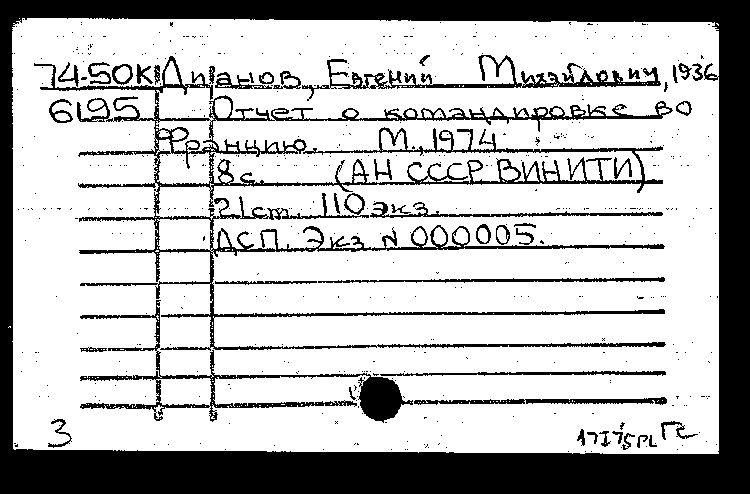 74-50К Дианов, Евгений Михайлович, 1936
6195 Отчет о командировке во
Францию. М., 1974
8 с. (АН СССР ВИНИТИ)
21 cm. 110 экз.
ДСП. Экз N 000005.
3